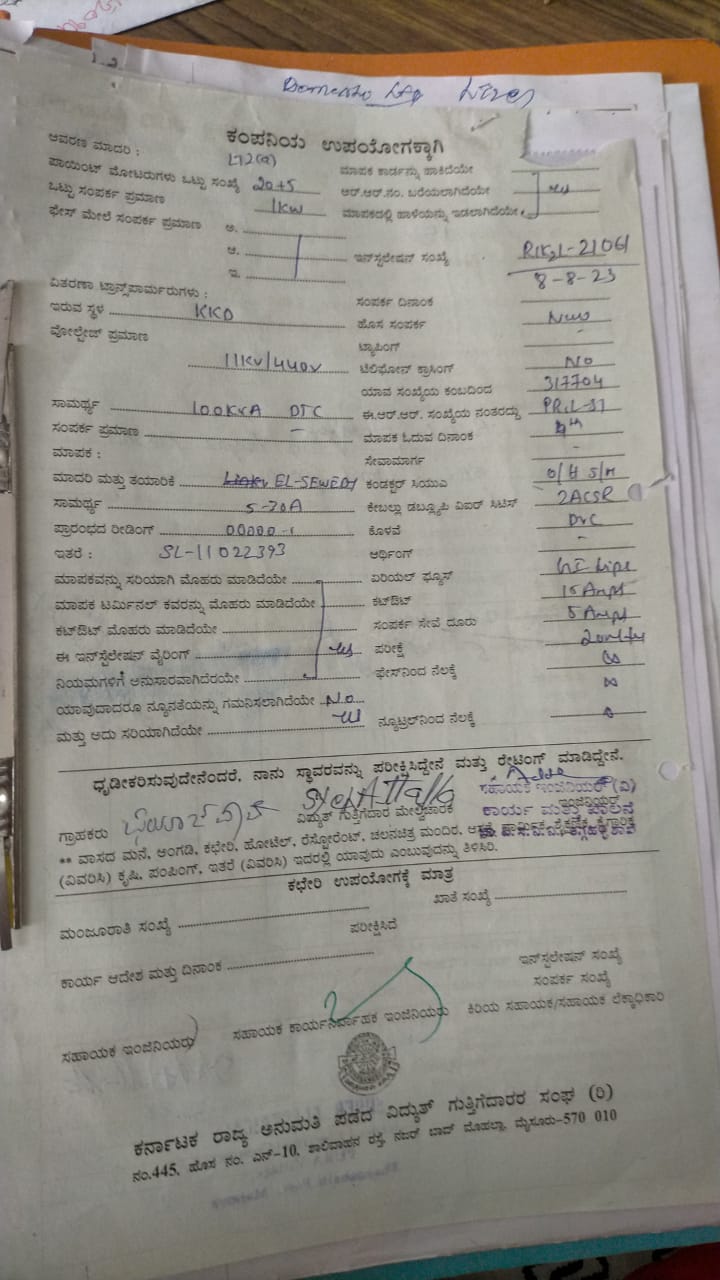 ಕಂಪನಿಯ ಉಪಯೋಗಕ್ಕಾಗಿ
ಆವರಣ ಮಾದರಿ : LT2(a) ಮಾಪಕ ಕಾರ್ಡನ್ನು ಹಾಕಿದೆಯೇ
ಪಾಯಿಂಟ್ ಮೋಟರುಗಳು ಒಟ್ಟು ಸಂಖ್ಯೆ 20+5 ಆರ್.ಆರ್.ನಂ. ಬರೆಯಲಾಗಿದೆಯೇ
ಒಟ್ಟು ಸಂಪರ್ಕ ಪ್ರಮಾಣ 1KW ಮಾಪಕದಲ್ಲಿ ಹಾಳೆಯನ್ನು ಇಡಲಾಗಿದೆಯೇ
ಫೇಸ್ ಮೇಲೆ ಸಂಪರ್ಕ ಪ್ರಮಾಣ ಅ.
ಆ. ಇನ್‌ಸ್ಟಲೇಷನ್ ಸಂಖ್ಯೆ
ಇ. 8-8-23
ವಿತರಣಾ ಟ್ರಾನ್ಸ್‌ಪಾರ್ಮರುಗಳು : ಸಂಪರ್ಕ ದಿನಾಂಕ
ಇರುವ ಸ್ಥಳ KKD ಹೊಸ ಸಂಪರ್ಕ New
ವೋಲ್ಟೇಜ್ ಪ್ರಮಾಣ ಟ್ಯಾಪಿಂಗ್ -
11KV/440V ಟೆಲಿಫೋನ್ ಕ್ರಾಸಿಂಗ್ NO
ಯಾವ ಸಂಖ್ಯೆಯ ಕಂಬದಿಂದ 317704
ಸಾಮರ್ಥ್ಯ 100KVA DTC ಈ.ಆರ್.ಆರ್. ಸಂಖ್ಯೆಯ ನಂತರದ್ದು
ಸಂಪರ್ಕ ಪ್ರಮಾಣ - ಮಾಪಕ ಓದುವ ದಿನಾಂಕ
ಮಾಪಕ : ಸೇವಾಮಾರ್ಗ -
ಮಾದರಿ ಮತ್ತು ತಯಾರಿಕೆ EL-SEWEDY ಕಂಡಕ್ಟರ್ ಸಿಯುಎ O/H S/M
ಸಾಮರ್ಥ್ಯ 5-30A ಕೇಬಲ್ಲಾ ಡಬ್ಲ್ಯೂಪಿ ವಿಐರ್ ಸಿಟಿಸ್ 2ACSR
ಪ್ರಾರಂಭದ ರೀಡಿಂಗ್ 00000-1 ಕೊಳವೆ PVC
ಇತರೆ : SL-11022393 ಆರ್ಥಿಂಗ್ -
ಮಾಪಕವನ್ನು ಸರಿಯಾಗಿ ಮೊಹರು ಮಾಡಿದೆಯೇ ಏರಿಯಲ್ ಫ್ಯೂಸ್ GI Pipe
ಮಾಪಕ ಟರ್ಮಿನಲ್ ಕವರನ್ನು ಮೊಹರು ಮಾಡಿದೆಯೇ ಕಟ್‌ಔಟ್ 15 Amps
ಕಟ್‌ಔಟ್ ಮೊಹರು ಮಾಡಿದೆಯೇ ಸಂಪರ್ಕ ಸೇವೆ ದೂರು 5 Amps
ಈ ಇನ್‌ಸ್ಟಲೇಷನ್ ವೈರಿಂಗ್ ಪರೀಕ್ಷೆ
ನಿಯಮಗಳಿಗೆ ಅನುಸಾರವಾಗಿದೆರಯೇ ಫೇಸ್‌ನಿಂದ ನೆಲಕ್ಕೆ
ಯಾವುದಾದರೂ ನ್ಯೂನತೆಯನ್ನು ಗಮನಿಸಲಾಗಿದೆಯೇ No
ಮತ್ತು ಅದು ಸರಿಯಾಗಿದೆಯೇ ನ್ಯೂಟ್ರಲ್‌ನಿಂದ ನೆಲಕ್ಕೆ
ಧೃಡೀಕರಿಸುವುದೇನೆಂದರೆ, ನಾನು ಸ್ಥಾವರವನ್ನು ಪರೀಕ್ಷಿಸಿದ್ದೇನೆ ಮತ್ತು ರೇಟಿಂಗ್ ಮಾಡಿದ್ದೇನೆ.
ಸಹಾಯಕ ಇಂಜಿನಿಯರ್ (ವಿ)
ಗ್ರಾಹಕರು ವಿದ್ಯುತ್ ಗುತ್ತಿಗೆದಾರ ಮೇಲ್ವಿಚಾರಕ ಇಂಜಿನಿಯರ್
ಕಾರ್ಯ ಮತ್ತು ಪಾಲನೆ
** ವಾಸದ ಮನೆ, ಅಂಗಡಿ, ಕಛೇರಿ, ಹೋಟೆಲ್, ರೆಸ್ಟೋರೆಂಟ್, ಚಲನಚಿತ್ರ ಮಂದಿರ,
(ವಿವರಿಸಿ) ಕೃಷಿ, ಪಂಪಿಂಗ್, ಇತರೆ (ವಿವರಿಸಿ) ಇದರಲ್ಲಿ ಯಾವುದು ಎಂಬುವುದನ್ನು ತಿಳಿಸಿರಿ.
ಕಛೇರಿ ಉಪಯೋಗಕ್ಕೆ ಮಾತ್ರ
ಮಂಜೂರಾತಿ ಸಂಖ್ಯೆ ಖಾತೆ ಸಂಖ್ಯೆ
ಪರೀಕ್ಷಿಸಿದೆ
ಕಾರ್ಯ ಆದೇಶ ಮತ್ತು ದಿನಾಂಕ ಇನ್‌ಸ್ಟಲೇಷನ್ ಸಂಖ್ಯೆ
ಸಂಪರ್ಕ ಸಂಖ್ಯೆ
ಸಹಾಯಕ ಇಂಜಿನಿಯರು ಸಹಾಯಕ ಕಾರ್ಯನಿರ್ವಾಹಕ ಇಂಜಿನಿಯರು ಕಿರಿಯ ಸಹಾಯಕ/ಸಹಾಯಕ ಲೆಕ್ಕಾಧಿಕಾರಿ
ಕರ್ನಾಟಕ ರಾಜ್ಯ ಅನುಮತಿ ಪಡೆದ ವಿದ್ಯುತ್ ಗುತ್ತಿಗೆದಾರರ ಸಂಘ (ರಿ)
ನಂ.445, ಹೊಸ ನಂ. ಎನ್-10, ಶಾಲಿವಾಹನ ರಸ್ತೆ, ನಜರ್ ಬಾದ್ ಮೊಹಲ್ಲಾ, ಮೈಸೂರು-570 010